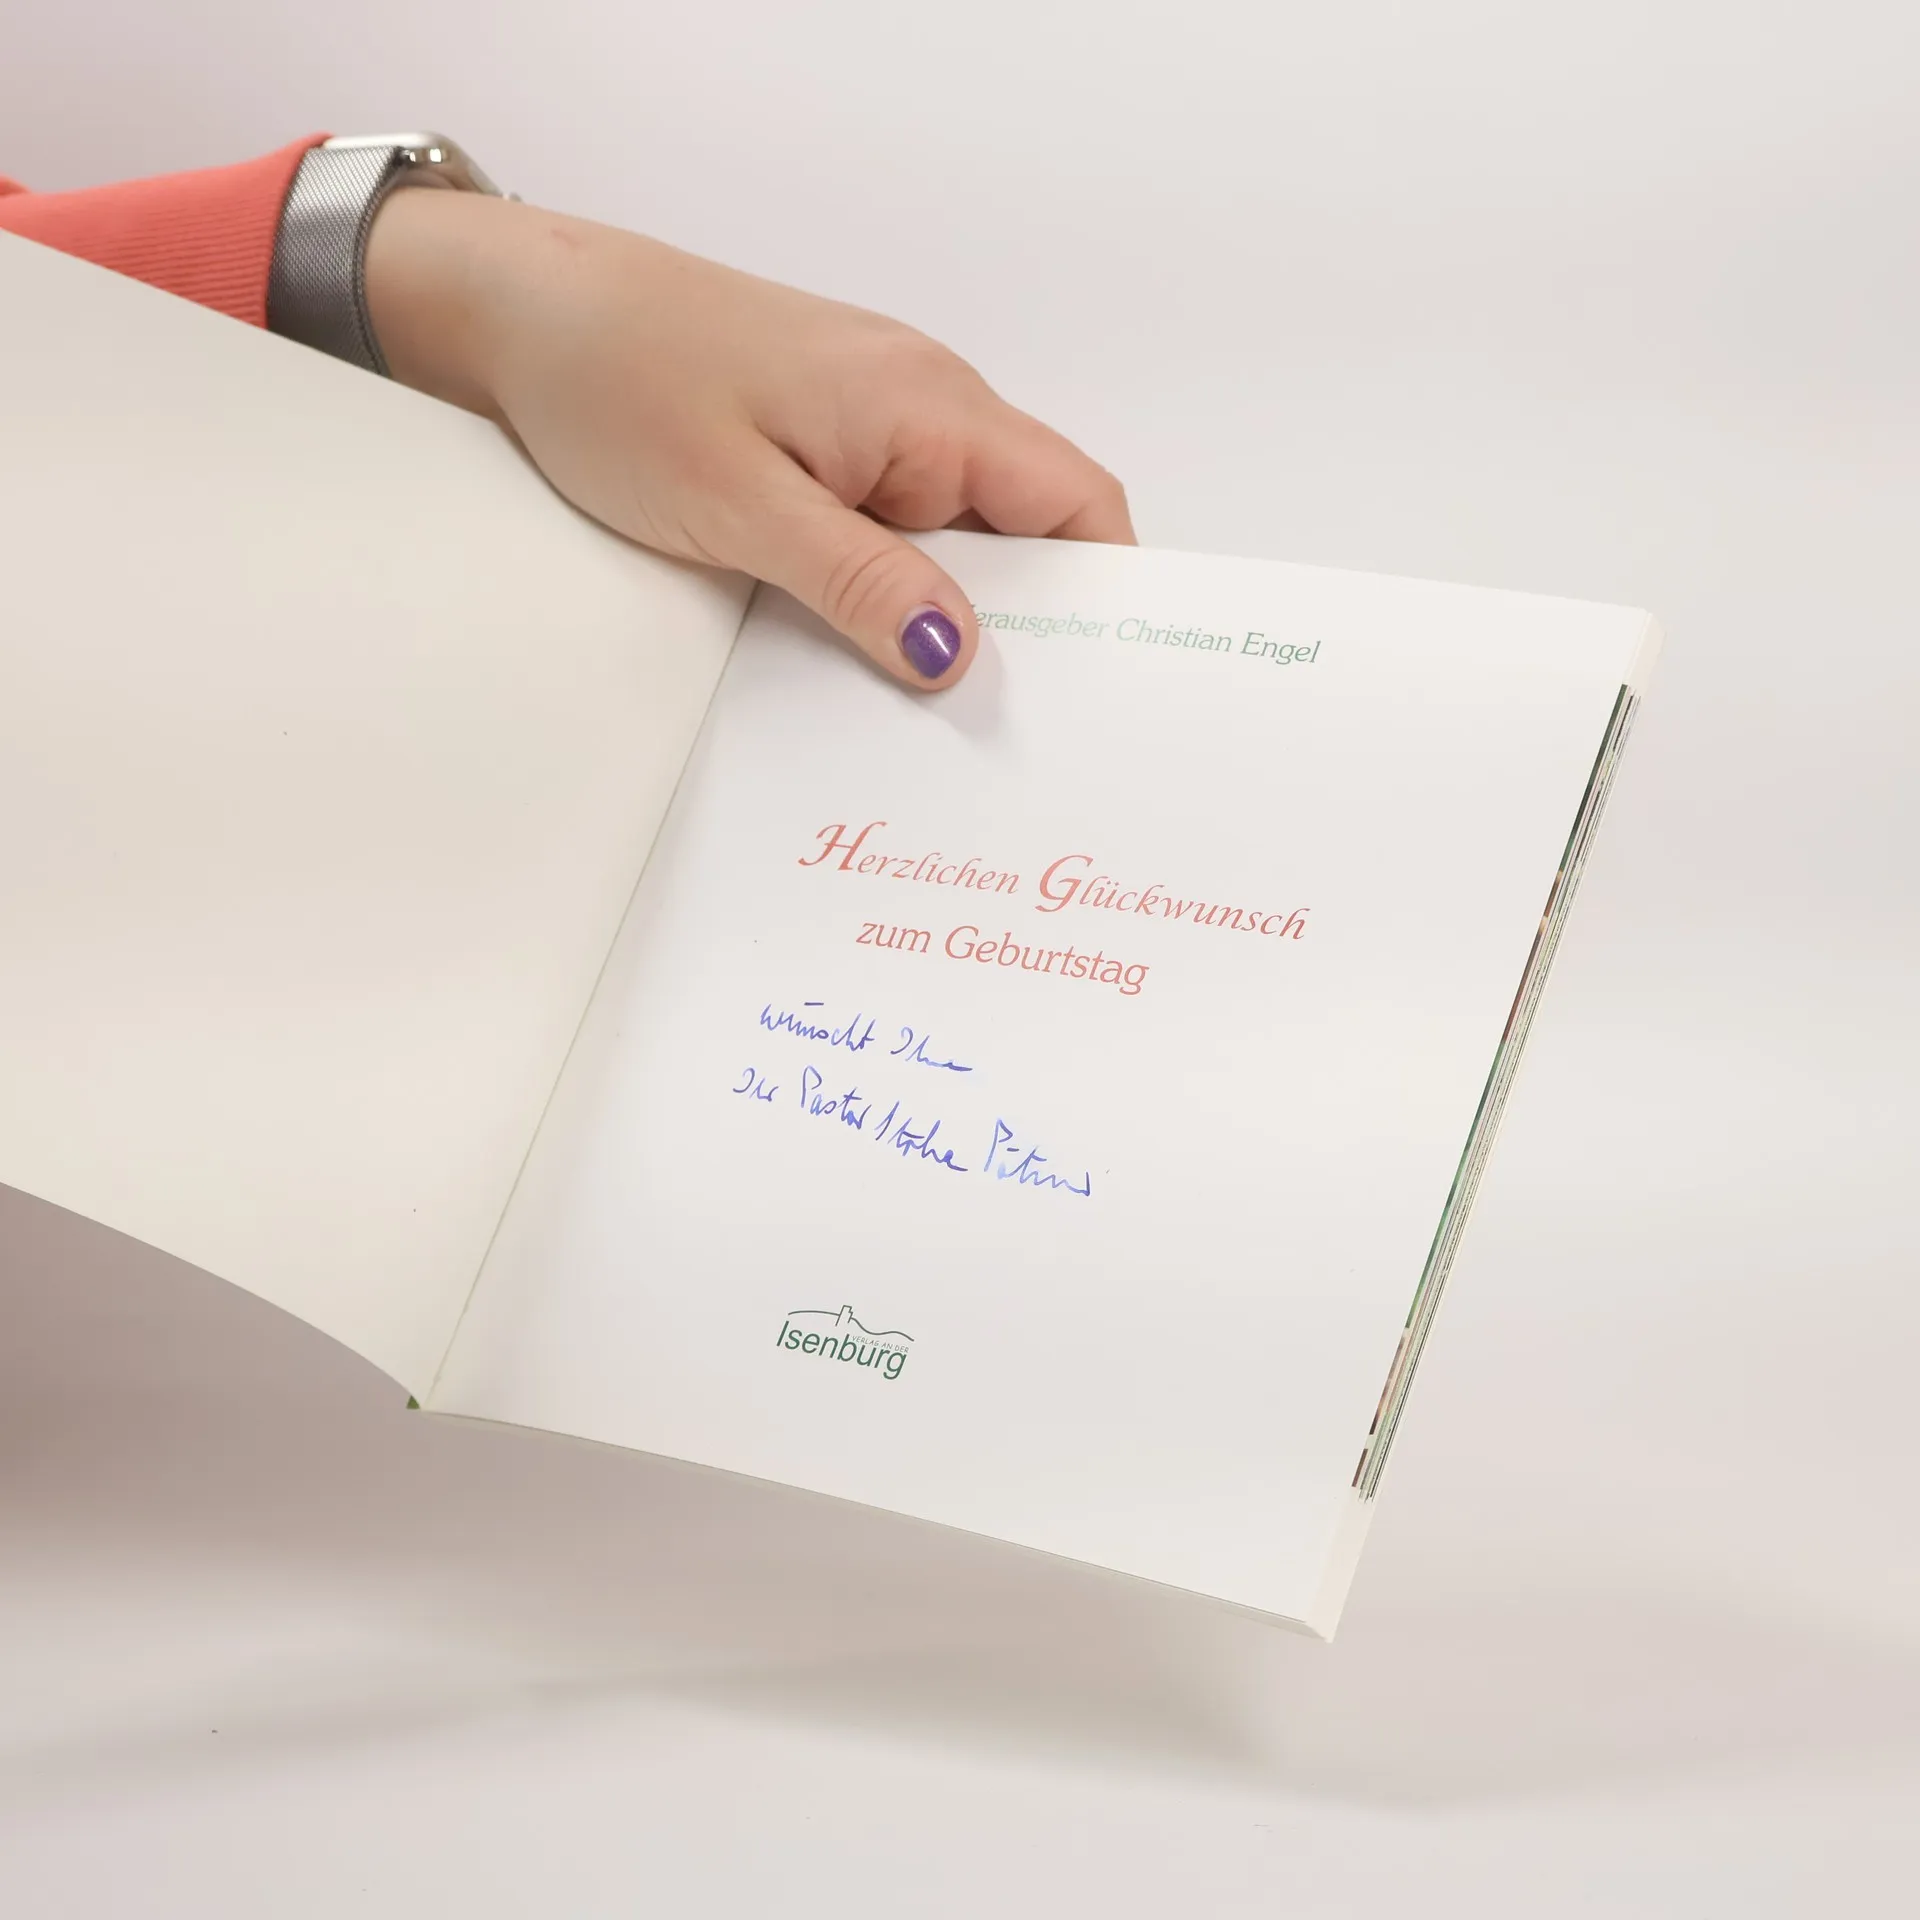 erausgeber Christian Engel
Herzlichen Glückwunsch
zum Geburtstag
wünscht Ihnen
Ihr Pastor
VERLAG AN DER
Isenburg